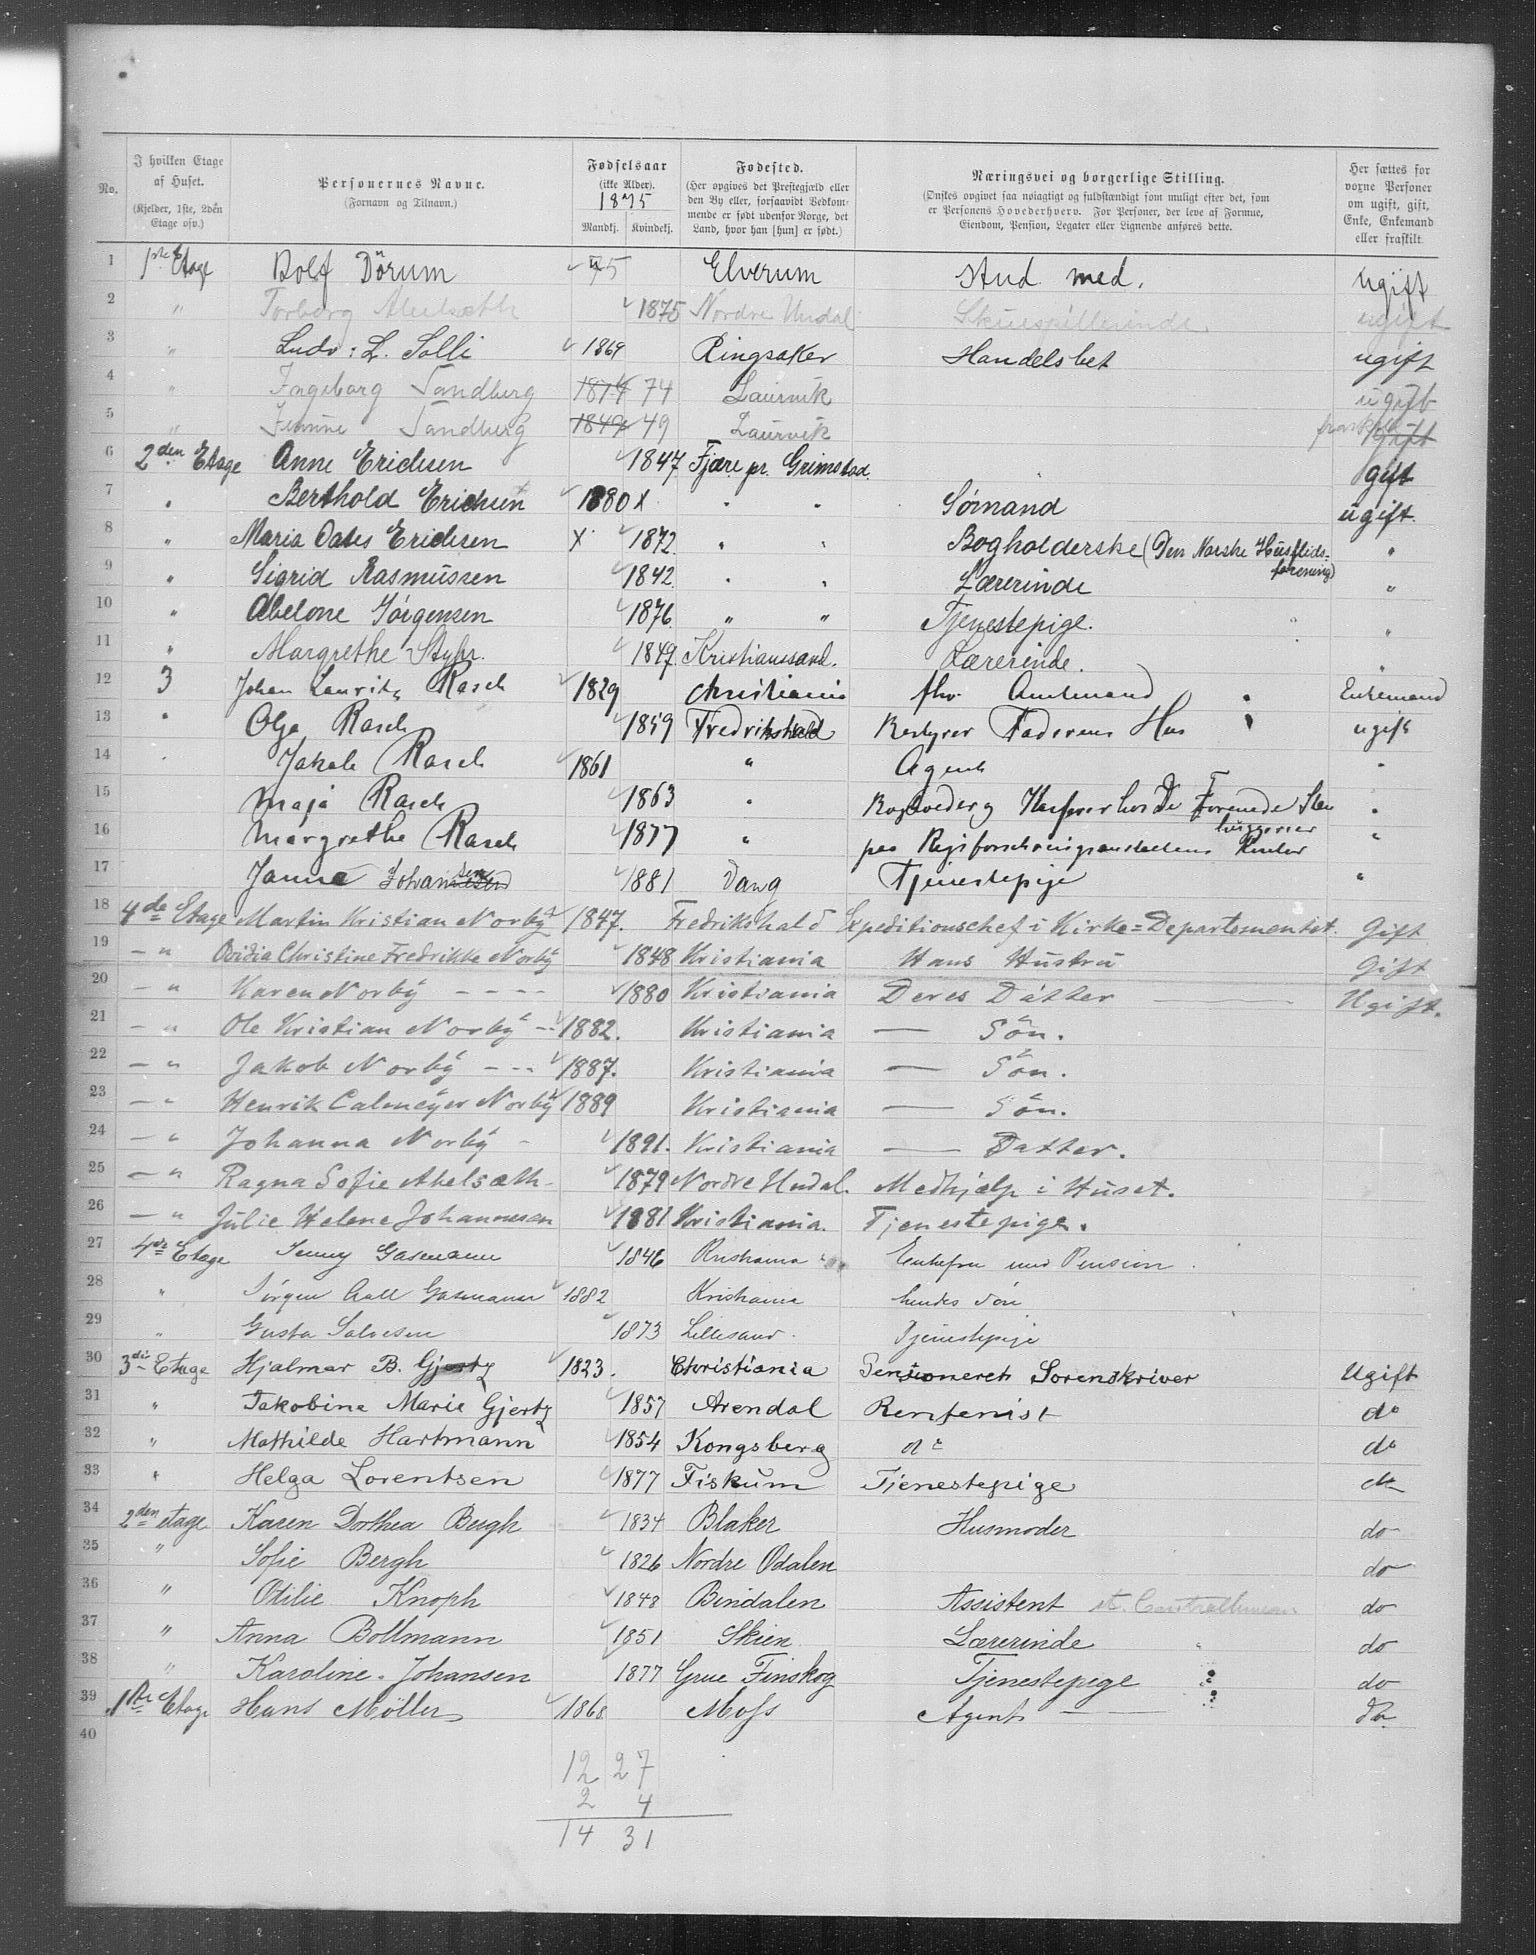 No. | I hvilken Etage af Huset. (Kjelder, 1ste, 2den Etage osv.) | Personernes Navne. (Fornavn og Tilnavn.) | Fødselsaar (ikke Alder). 1875 Mandkj. Kvindekj. | Fødested. (Her opgives det Prestegjæld eller den By eller, forsaavidt Vedkommende er født udenfor Norge, det Land, hvor han [hun] er født.) | Næringsvei og borgerlige Stilling. (Ønskes opgivet saa nøiagtigt og fuldstændigt som muligt efter det, som er Personens Hovederhverv. For Personer, der leve af Formue, Eiendom, Pension, Legater eller Lignende anføres dette. | Her sættes for voxne Personer om ugift, gift, Enke, Enkemand eller fraskilt
1 1ste Etage Rolf Dørum 75 Elverum stud med. ugift
2 " Torborg Abelsæth 1875 Nordre Undal Skuespillerinde ugift
3 " Ludv: L. Solli 1869 Ringsaker Handelsbet ugift
4 " Ingeborg Sandberg 1874 74 Laurvik ugift
5 " Sandberg 1849 49 Laurvik gift
6 2den Etage Anne Erichsen 1847 Fjære pr. Grimstad gift
7 " Berthold Erichsen 1880 X " " Sømand ugift.
8 " Maria Oates Erichsen X 1872. " " Bogholderske (Den Norske Husflids=forening) "
9 " Sigrid Rasmussen 1842. " " Lærerinde "
10 " Abelone Jörgensen 1876. " " Tjenestepige. "
11 " Margrethe 1849. Kristianssand. Lærerinde. "
12 3 Johan Lauritz Rasch 1829 Christiania fhv. Amtmand Enkemand
13 " Olga Rasch 1859 Fredrikshald Bestyrer Faderens Hus ugift
14 " Jakob Rasch 1861 " Agent "
15 Maja Rasch 1863 " De Forenede Sten huggerier "
16 Margrethe Rasch 1877 " paa Rigsforsikringsanstaltens Kontor "
17 Janna Johansen 1881 Vang Tjenestepige "
18 4de Etage Martin Kristian Norby 1847. Fredrikshald Expeditionschef i Kirke=Departementet. Gift
19 - " Ovidia Christine Fredrikke Norby 1848 Kristiania Hans Hustru Gift
20 - " Karen Norby - - - - 1880 Kristiania Deres Datter Ugift.
21 - " Ole Kristian Norby - 1882. Kristiania — Sön.
22 - " Jakob Norby - - - 1887. Kristiania — Sön.
23 - " Henrik Calmeyer Norby 1889 Kristiania — Sön.
24 - " Johanna Norby - 1891. Kristiania — Datter.
25 - " Ragna Sofie Abelsæth - 1879 Nordre Undal. Medhjælp i Huset.
26 - " Julie Helene Johannesen 1881 Kristiania. Tjenestepige.
27 4de Etage Jenny Gasmann 1846 Kristiania Enkefru med Pension
28 " Jörgen Aall Gasmann 1882 Kristiania hendes søn
29 " Gusta Salvesen 1873 Lillesand. Tjenestepige
30 3die Etage Hjalmar B. Gjertz 1823. Christiania Pensioneret Sorenskriver Ugift
31 " Jakobine Marie Gjertz 1857 Arendal Rentenist do
32 " Mathilde Hartmann 1854 Kongsberg do do
33 " Helga Lorentsen 1877 Fiskum Tjenestepige do
34 2den etage Karen Dorthea Bergh 1834 Blaker Husmoder do
35 " Sofie Bergh 1826 Nordre Odalen do
36 " Otilie Knoph 1848 Bindalen Assistent do
37 " Anna Bollmann 1851 Skien Lærerinde do
38 " Karoline Johansen 1877 Grue Finskog Tjenestepige do
39 1ste Etage Hans Möller 1868 Moss Agent — do
40
12 27
2 4
14 31